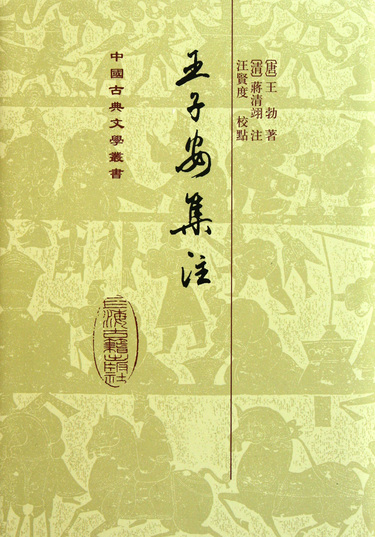 〔唐〕王勃 著
〔清〕蔣清翊 注
汪賢度 校點
王子安集注
中國古典文學叢書
上海古籍出版社